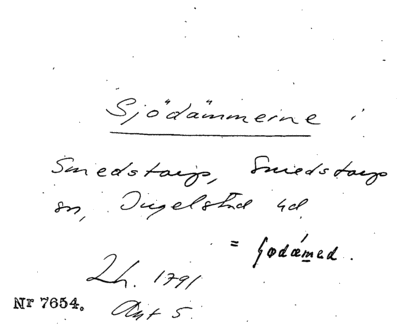 Sjödämmerne i
Smedstorp, Smedstorps
sn, Ingelstad hd.
= sodæmed.
Lh. 1791
Akt 5.
Nr 7654.